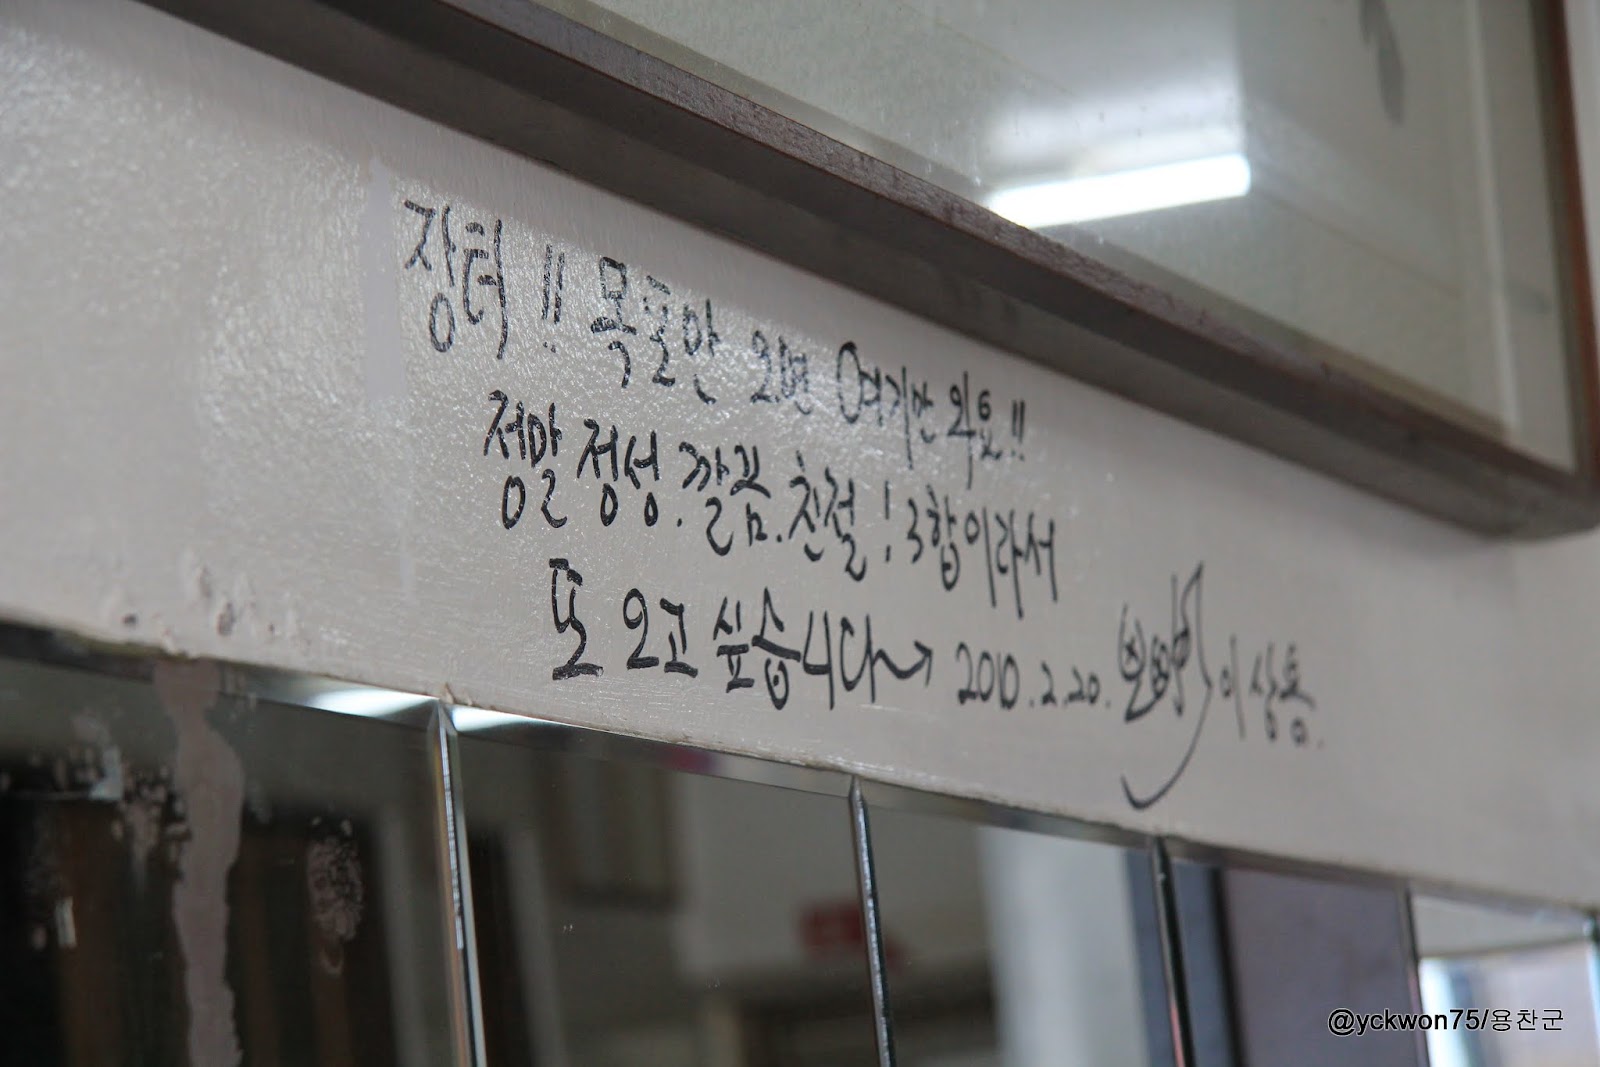 장터!! 목포만 오면 여기만 와요!!
정말 정성. 깔끔. 친절! 3합이라서
또 오고 싶습니다~→ 2010.2.20. 이상용.
@yckwon75/용찬군